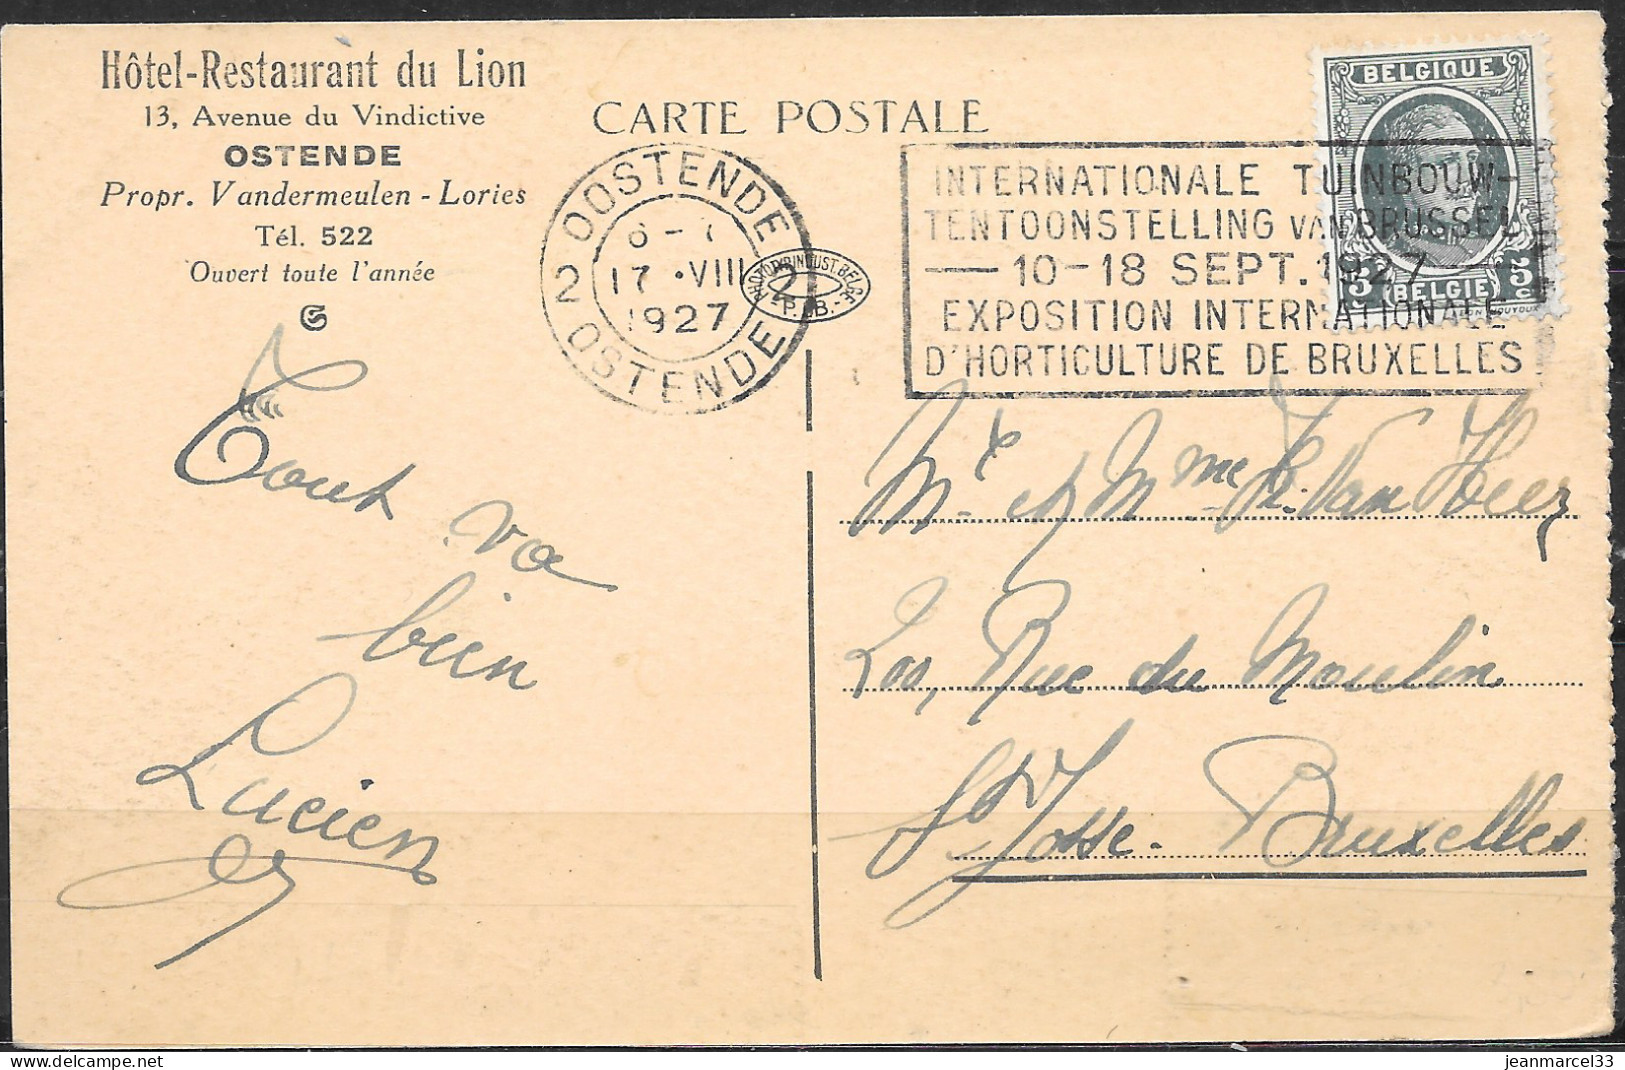 Hôtel-Restaurant du Lion
13, Avenue du Vindictive
OSTENDE
Propr. Vandermeulen - Lories
Tél. 522
Ouvert toute l'année
CARTE POSTALE
OOSTENDE
17 · VIII
1927
2 2
OSTENDE
PHOTOTYP. INDUST. BELGE
INTERNATIONALE TUINBOUW-
TENTOONSTELLING VAN BRUSSEL
— 10-18 SEPT. 1927 —
EXPOSITION INTERNATIONALE
D'HORTICULTURE DE BRUXELLES
BELGIQUE
5c (BELGIE) 5c
Tout
va
bien
Lucien
Mr et Mme Van
Rue du Moulin
St Josse. Bruxelles
jeanmarcel33